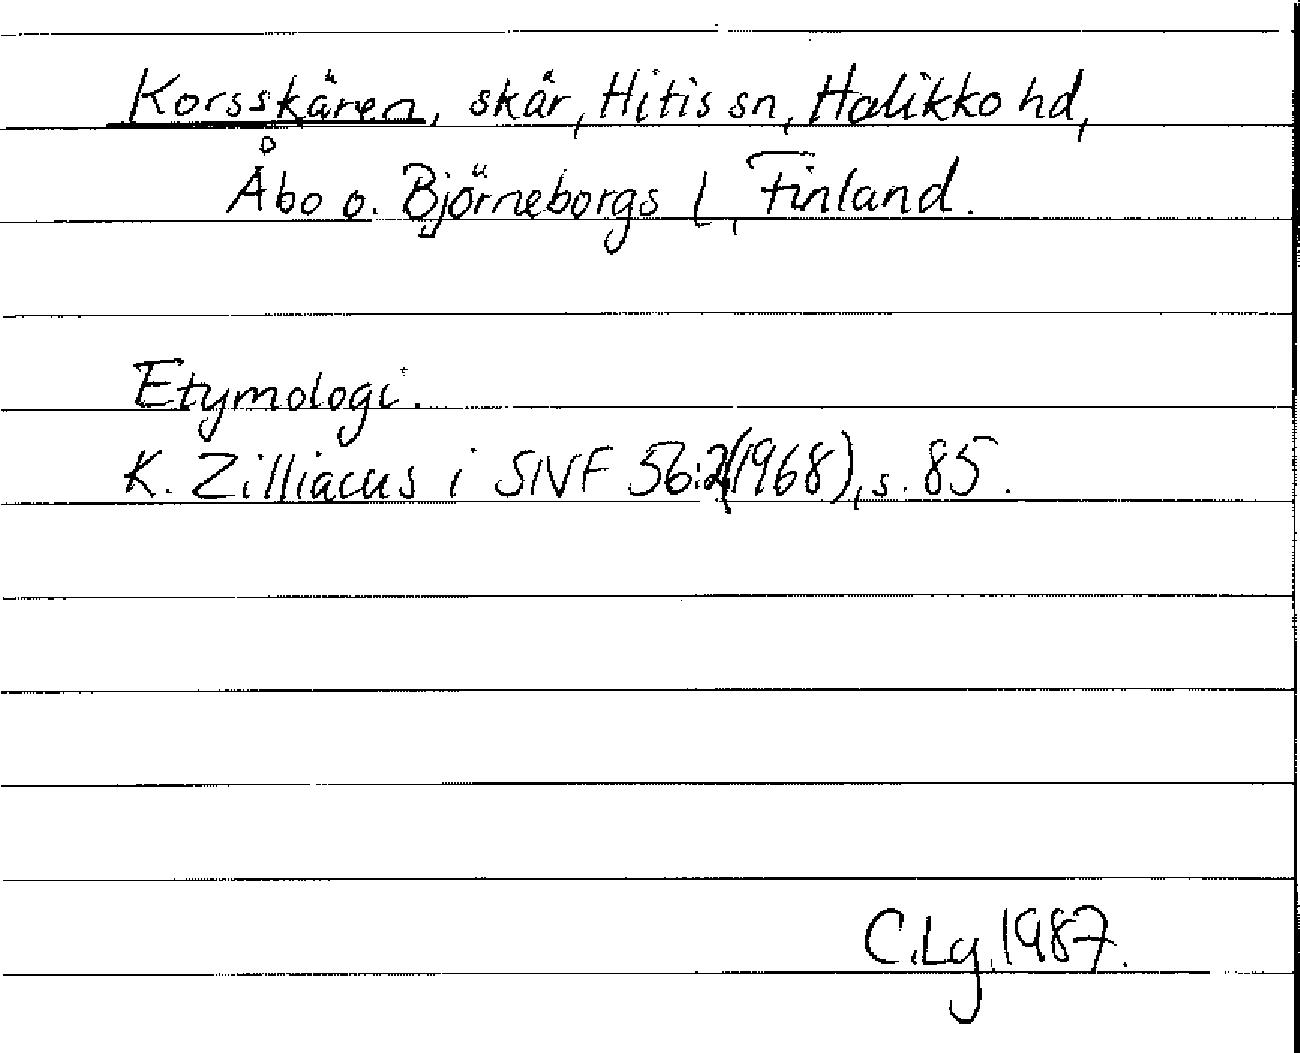 Korsskären, skär, Hitis sn, Halikko hd,
Åbo o. Björneborgs l, Finland.
Etymologi.
K. Zilliacus i SNF 56:2(1968), s. 85.
C.Lg. 1987.